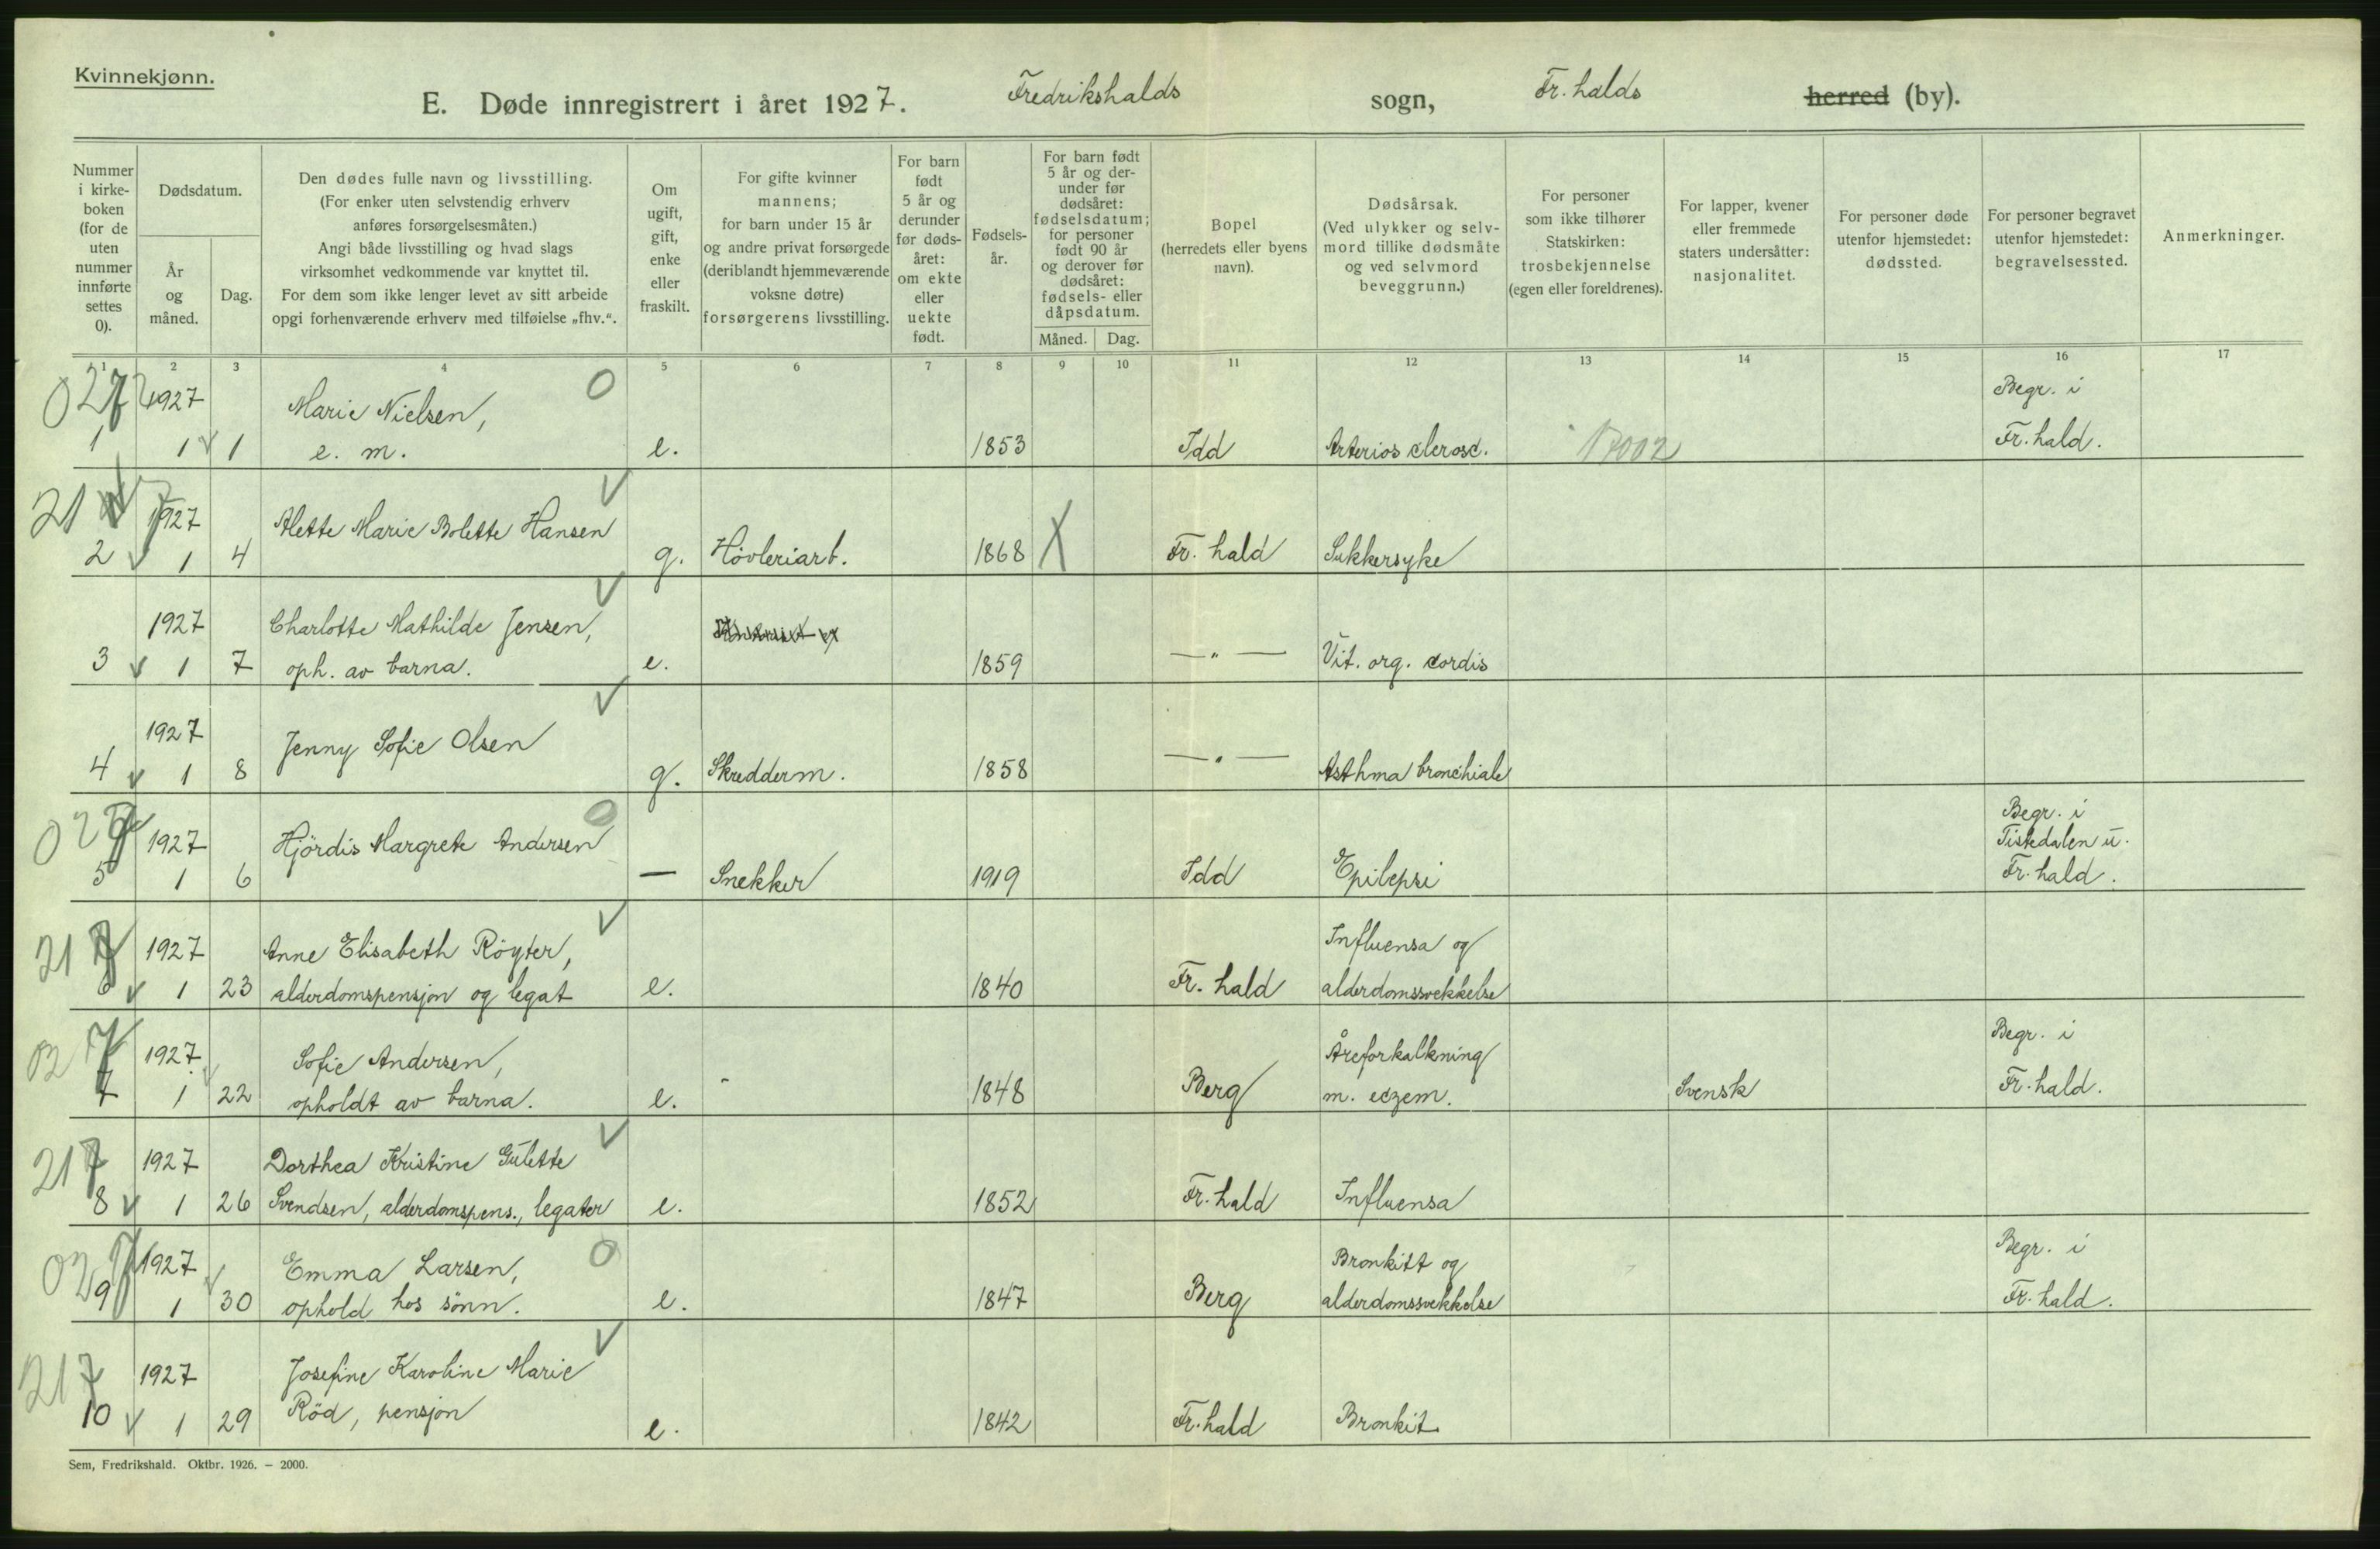 Kvinnekjønn.
E. Døde innregistrert i året 1927. Fredrikshalds sogn, Fr. halds herred (by).
Nummer i kirke- boken (for de uten nummer innførte settes 0).
Dødsdatum.
År og måned.
Dag.
Den dødes fulle navn og livsstilling.
(For enker uten selvstendig erhverv
anføres forsørgelsesmåten.)
Angi både livsstilling og hvad slags
virksomhet vedkommende var knyttet til.
For dem som ikke lenger levet av sitt arbeide
opgi forhenværende erhverv med tilføielse „fhv.“.
Om ugift, gift, enke eller fraskilt.
For gifte kvinner
mannens;
for barn under 15 år
og andre privat forsørgede
(deriblandt hjemmeværende
voksne døtre)
forsørgerens livsstilling.
For barn født 5 år og derunder før døds- året: om ekte eller uekte født.
Fødsels- år.
For barn født
5 år og der-
under før
dødsåret:
fødselsdatum;
for personer
født 90 år
og derover før
dødsåret:
fødsels- eller
dåpsdatum.
Måned. Dag.
Bopel
(herredets eller byens
navn).
Dødsårsak.
(Ved ulykker og selv-
mord tillike dødsmåte
og ved selvmord
beveggrunn.)
For personer
som ikke tilhører
Statskirken:
trosbekjennelse
(egen eller foreldrenes).
For lapper, kvener
eller fremmede
staters undersåtter:
nasjonalitet.
For personer døde
utenfor hjemstedet:
dødssted.
For personer begravet
utenfor hjemstedet:
begravelsessted.
Anmerkninger.
1 2 3 4 5 6 7 8 9 10 11 12 13 14 15 16 17
027 1927 Marie Nielsen, 0 Begr. i
1 1 1 e. m. e. 1853 Idd Arterios clerosc. 17002 Fr. hald.
21 1927 Alette Marie Bolette Hansen
2 1 4 g. Høvleriarb. 1868 X Fr. hald Sukkersyke
1927 Charlotte Mathilde Jensen,
3 1 7 oph. av barna. e. 1859 — " — Vit. org. cordis
1927 Jenny Sofie Olsen
4 1 8 g. Skredderm. 1858 — " — Asthma bronchiale
02 1927 Hjördis Margrete Andersen 0 Begr. i
Tistedalen u.
5 1 6 — Snekker 1919 Idd Epilepsi Fr. hald.
217 1927 Anne Elisabeth Röyter, Influensa og
6 1 23 alderdomspensjon og legat e. 1840 Fr. hald alderdomssvekkelse
027 1927 Sofie Andersen, Åreforkalkning Begr. i
7 1 22 opholdt av barna. e. 1848 Berg m. eczem. Svensk Fr. hald.
217 1927 Dorthea Kristine Gulette
8 1 26 Svendsen, alderdomspens., legater e. 1852 Fr. hald Influensa
027 1927 Emma Larsen, 0 Bronkitt og Begr. i
9 1 30 ophold hos sönn. e. 1847 Berg alderdomssvekkelse Fr. hald.
217 1927 Josefine Karoline Marie
10 1 29 Röd, pensjon e. 1842 Fr. hald Bronkit.
Sem, Fredrikshald. Oktbr. 1926. – 2000.